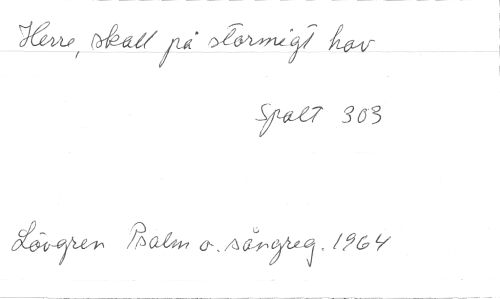 Herre, skall på stormigt hav
Spalt 303
Lövgren Psalm o. sångreg. 1964